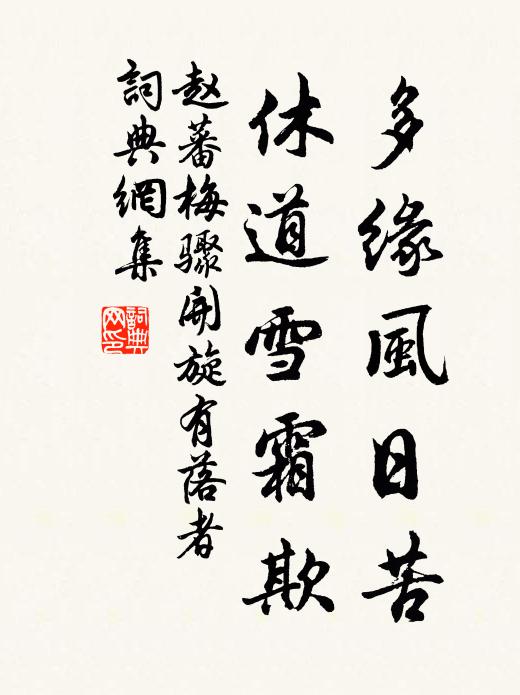 多緣風日苦
休道雪霜欺
赵蕃梅驟開旋有落者
詞典網集
詞典网印